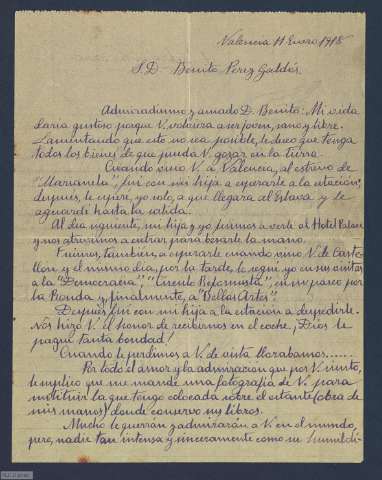 Valencia 11 Enero 1918
S. D. Benito Perez Galdós
Admiradísimo y amado D. Benito: Mi vida
daría gustoso porque V. volviera a ser joven, sano y libre.
Lamentando que esto no sea posible, le deseo que tenga
todos los bienes de que pueda V. gozar en la tierra.
Cuando vino V. a Valencia, al estreno de
"Marianela", fuí con mi hija a esperarle a la estación,
después, le esperé, yo solo, a que llegara al Eslava y le
aguardé hasta la salida.
Al dia siguiente, mi hija y yo fuimos a verle al Hotel Palace
y nos atrevimos a entrar para besarle la mano.
Fuimos, tambien, a esperarle cuando vino V. de Caste-
llon y el mismo dia, por la tarde, le seguí yo en sus visitas
a la "Democracia", "Circulo Reformista", en su paseo por
la Ronda y, finalmente, a "Bellas Artes".
Después fuí con mi hija a la estación a despedirle.
Nos hizo V. el honor de recibirnos en el coche, ¡Dios le
pague tanta bondad!
Cuando le perdimos a V. de vista llorabamos......
Por todo el amor y la admiracion que por V. siento,
le suplico que me mande una fotografía de V. para
sustituir la que tengo colocada sobre el estante (obra de
mis manos) donde conservo sus libros.
Mucho le querrán y admirarán a V. en el mundo,
pero, nadie tan intensa y sinceramente como su humildí-